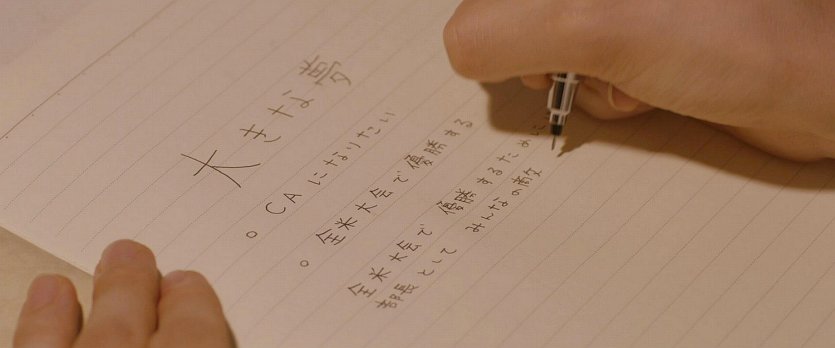 大きな夢
○ CAになりたい
○ 全米大会で優勝する
全米大会で 優勝するために
部長として みんなの敵